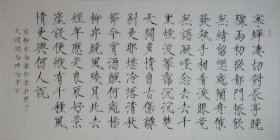 寒蟬凄切對長亭晚
驟雨初歇都門帳飲
無緒留戀處蘭舟催
發執手相看淚眼竟
無語凝噎念去去千
里煙波暮靄沉沉楚
天闊多情自古傷離
別更那堪冷落清秋
節今宵酒醒何處楊
柳岸曉風殘月此去
經年應是良辰好景
虛設便縱有千種風
情更與何人說
宋柳永雨霖鈴